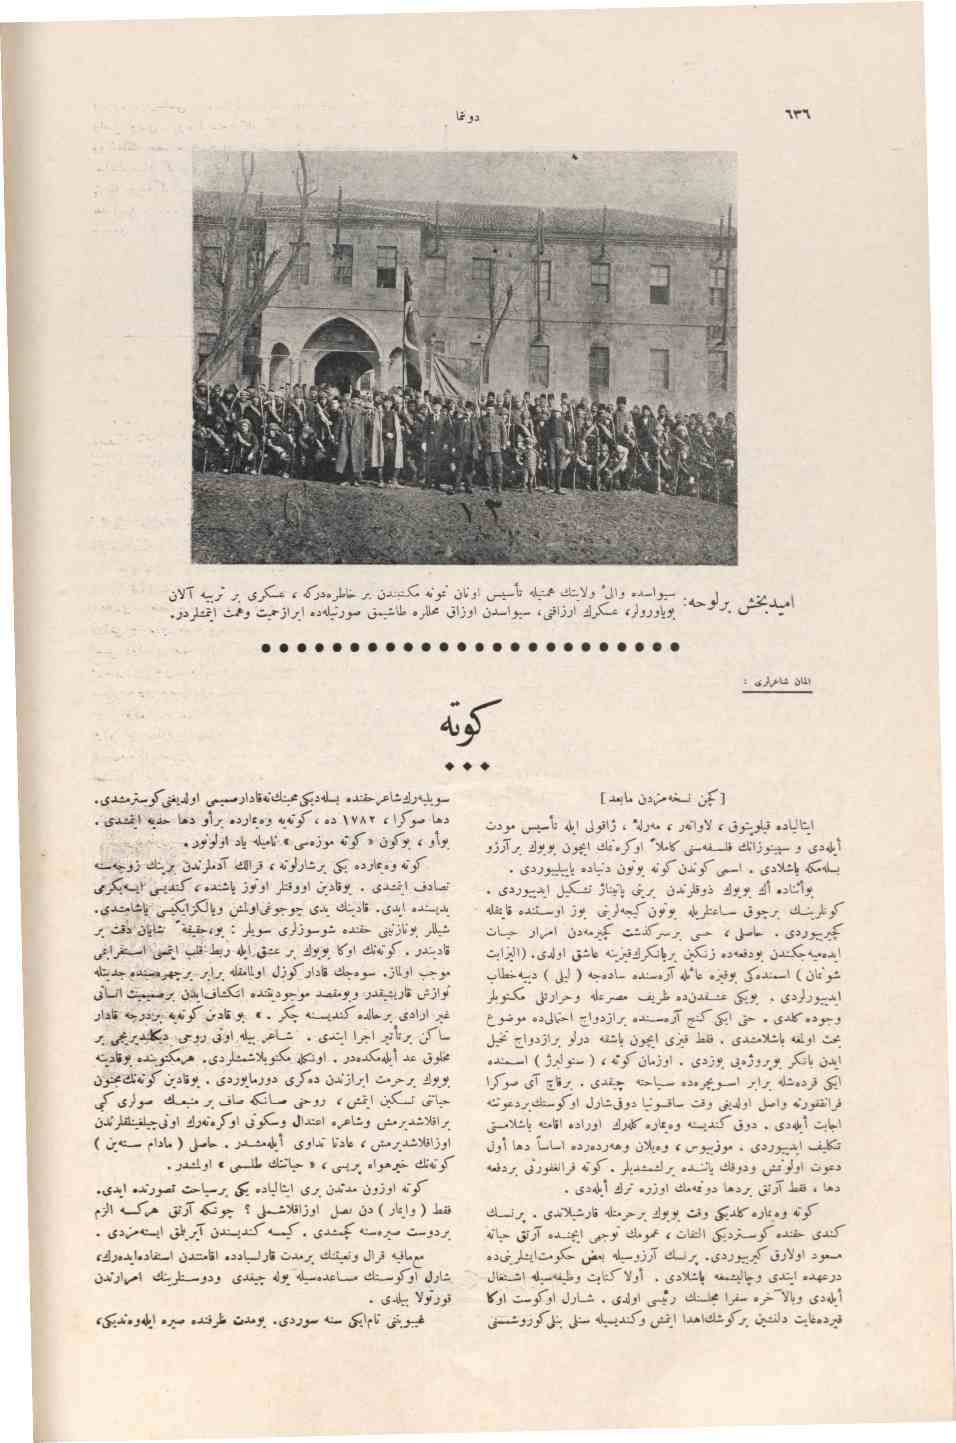 ٦٣٦
دونما
١٣
امیدبخش برلوحه: سیواسده والیٔ ولایتك همتیله تأسیس اونان نمونه مکتبندن بر خاطره‌درکه ، عسکری بر تربیه آلان
یویاورولر، عسکرك ارزاقنی ، سیواسدن اوزاق محللره طاشیمق صورتیله‌ده ابرازحمیت وهمت ایتمشلردر.
المان شاعرلری :
کوته
[ کچن نسخه‌مزدن مابعد ]
ایتالیاده قیلوپتوق ، لاواته‌ر ، مه‌رلهٔ ، ژاقوبی ایله تأسیس مودت
أیله‌دی و سپینوزانك فلسفه‌سنی کاملاً اوکره‌نمك ایچون بویوك برآرزو
بسله‌مکه باشلادی . اسمی کوندن کونه بوتون دنیاده یاییلییوردی .
بوأثناده أك بویوك ذوقلرندن برینی پاتیناژ تشکیل ایدییوردی .
کونلرینك برچوق ساعتلریله بوتون کیجه‌لرینی بوز اوستنده قایمقله
کچیرییوردی . حاصلی ، حسی برسرکذشت کچیرمه‌دن امرار حیات
ایده‌میه‌جکندن بودفعه‌ده زنکین بربانکرك‌قیزینه عاشق اولدی. (الیزابت
شونمان ) اسمنده‌کی بوقیزه عائله آره‌سنده ساده‌جه ( لیلی ) دییه‌خطاب
ایدییورلردی . بویکی عشقدن‌ده ظریف مصرعلر وحرارتلی مکتوبلر
وجوده کلدی . حتی ایکی کنج آره‌سنده برازدواج احتمالی‌ده موضوع
بحث اولمغه باشلامشدی . فقط قیزی ایچون باشقه درلو برازدواج تخیل
ایدن بانکر بوپروژه‌یی بوزدی . اوزمان کوته ، ( ستولبرژ ) اسمنده
ایکی قرده‌شله برابر اسویچره‌ده سیاحته چیقدی . برقاچ آی صوکرا
فرانقفورته واصل اولدیغی وقت ساقسونیا دوقی‌شارل اوکوستك‌بردعوتنه
اجابت أیله‌دی . دوق کندیسنه ویمارده کله‌رك اوراده اقامته باشلامسنی
تکلیف ایدییوردی . موزییوس ، ویلان وهردرده‌ده اساساً دها أول
دعوت اولونمش ودوقك یاننده برلشمشدیلر . کوته فرانغفورتی بردفعه
دها ، فقط آرتق بردها دونمه‌مك اوزره ترك أیله‌دی .
کوته ویماره کلدیکی وقت بویوك برحرمتله قارشیلاندی . پرنسك
کندی حقنده کوستردیکی التفات ، عمومك توجهی ایچنده آرتق حیاته
مسعود اولارق کیرییوردی. پرنسك آرزوسیله بعض حکومت‌ایشلرینی‌ده
درعهده ایتدی وچالیشمغه باشلادی . أولا کتابت وظیفه‌سیله اشتغال
أیله‌دی وبالآخره سفرا مجلسنك رئیسی اولدی . شارل اوکوست اوکا
قیرده‌غایت دلنشین برکوشك‌اهدا ایتمش وکندیسیله سنلی بنلی‌کوروشمسنی
سویلیه‌رك‌شاعرحقنده بسله‌دیکی‌محبتك‌نه‌قدارصمیمی اولدیغنی‌کوسترمشدی.
دها صوکرا ، ١٧٨٢ ده ، کوته‌یه ویمارده برأو دها هدیه ایتمشدی .
بوأو ، بوکون « کوته موزه‌سی » نامیله یاد اولونور.
کوته ویمارده یکی برشارلوته ، قرالك آدملرندن برینك زوجه‌سنه
تصادف ایتمشدی . بوقادین اووقتلر اوتوز یاشنده ، کندیسی ایسه‌یکرمی
یدیسنده ایدی. قادینك یدی چوجوغی‌اولمش ویالکزایکیسی یاشامشدی.
شیللر بونازنینی حقنده شوسوزلری سویلر : بو، حقیقةً شایان دقت بر
قادیندر . کوته‌نك اوکا بویوك بر عشق ایله ربط قلب ایتمسی استغرابمی
موجب اولماز. سوه‌جك قادار کوزل اولمامقله برابر برچهره‌سنده جدیتله
نوازش قاریشیقدر وبومقصد موجودیتنده انکشاف‌ایدن برصمیمیت انسانی
غیر ارادی برحالده کندیسنه چکر . » بو قادین کوته‌یه بردرجه قادار
ساکن برتأثیر اجرا ایتدی . شاعر بیله اونی روحی دیکلندیریجی بر
مخلوق عد أیله‌مکده‌در . اونکله مکتوبلاشمشلردی. هرمکتوبنده بوقادینه
بویوك برحرمت ابرازندن ده‌کری دورمایوردی . بوقادین کوته‌نك‌مجنون
حیاتنی تسکین ایتمش ، روحی صانکه صاف بر منبعك صولری کبی
براقلاشدیرمش وشاعره اعتدال وسکونی اوکره‌ته‌رك اونی‌چیلغینلقلرندن
اوزاقلاشدیرمش ، عادتا تداوی أیله‌مشدر . حاصلی ( مادام ستهین )
کوته‌نك خیرهواه پریسی ، « حیاتنك طلسمی » اولمشدر .
کوته اوزون مدتدن بری ایتالیاده یکی برسیاحت تصورنده ایدی.
فقط ( وایمار ) دن نصل اوزاقلاشملی ؟ چونکه آرتق هرکسه الزم
بردوست صیره‌سنه کچمشدی . کیمسه کندیسندن آیریلمق ایسته‌مزدی .
مع‌مافیه قرال ونمیتنك برمدت قارلسبادده اقامتندن استفاده‌ایده‌رك،
شارل اوکوستك مساعده‌سیله یوله چیقدی ودوستلرینك اصرارندن
قورتولا بیلدی .
غیبوبتی تام‌ایکی سنه سوردی. بومدت ظرفنده صیره ایله‌وه‌ندیکی،